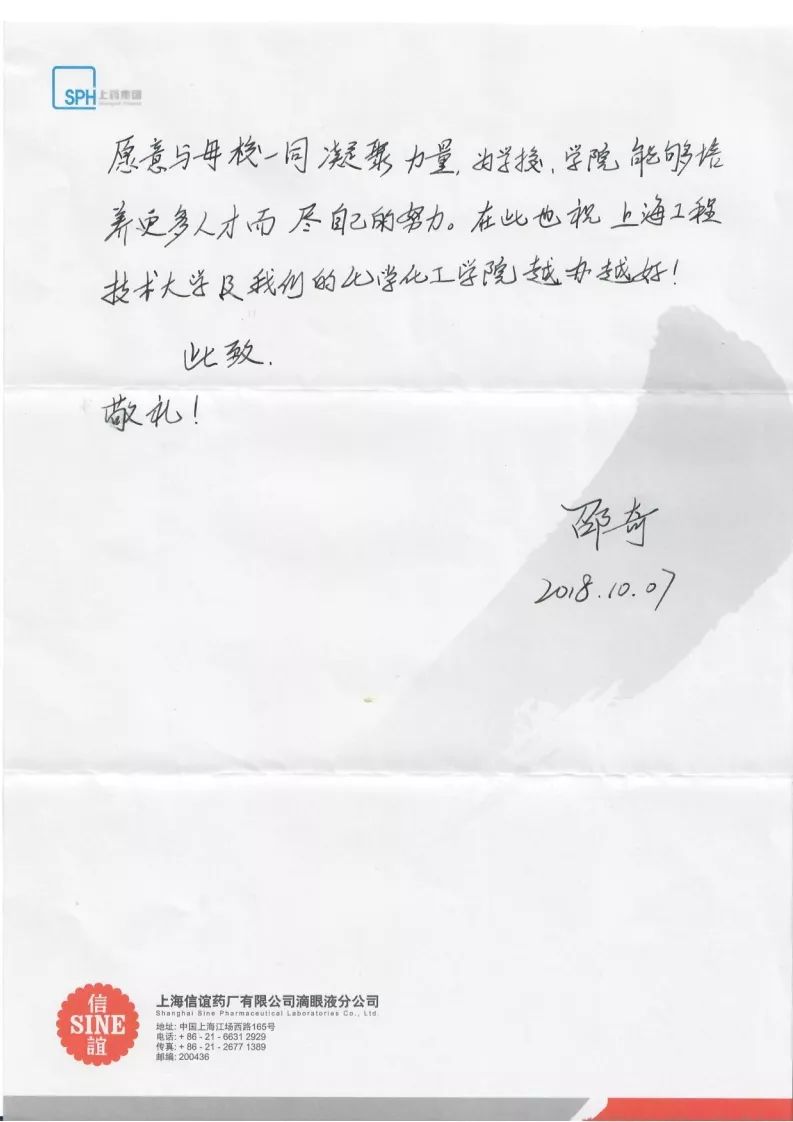 SPH 上药集团
愿意与母校一同凝聚力量，为学校、学院能够培
养更多人才而尽自己的努力。在此也祝上海工程
技术大学及我们的化学化工学院越办越好！
此致.
敬礼！
邵奇
2018.10.07
信
SINE
誼
上海信谊药厂有限公司滴眼液分公司
Shanghai Sine Pharmaceutical Laboratories Co., Ltd.
地址: 中国上海江场西路165号
电话: + 86 - 21 - 6631 2929
传真: + 86 - 21 - 2677 1389
邮编: 200436